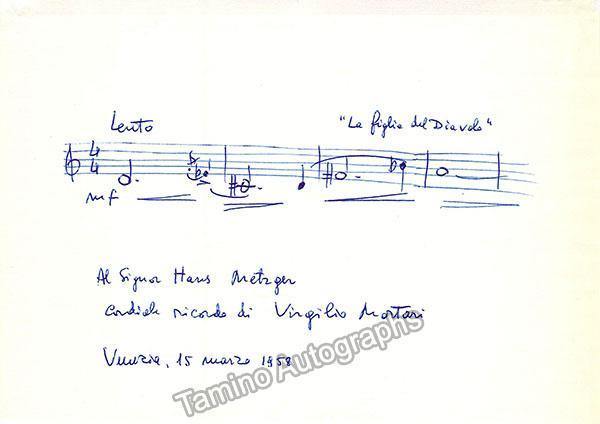 Lento "La figlia del Diavolo"
4
4
mf
Al Signor Hans Metzger
cordiale ricordo di Virgilio Mortari
Venezia, 15 marzo 1958
Tamino Autographs